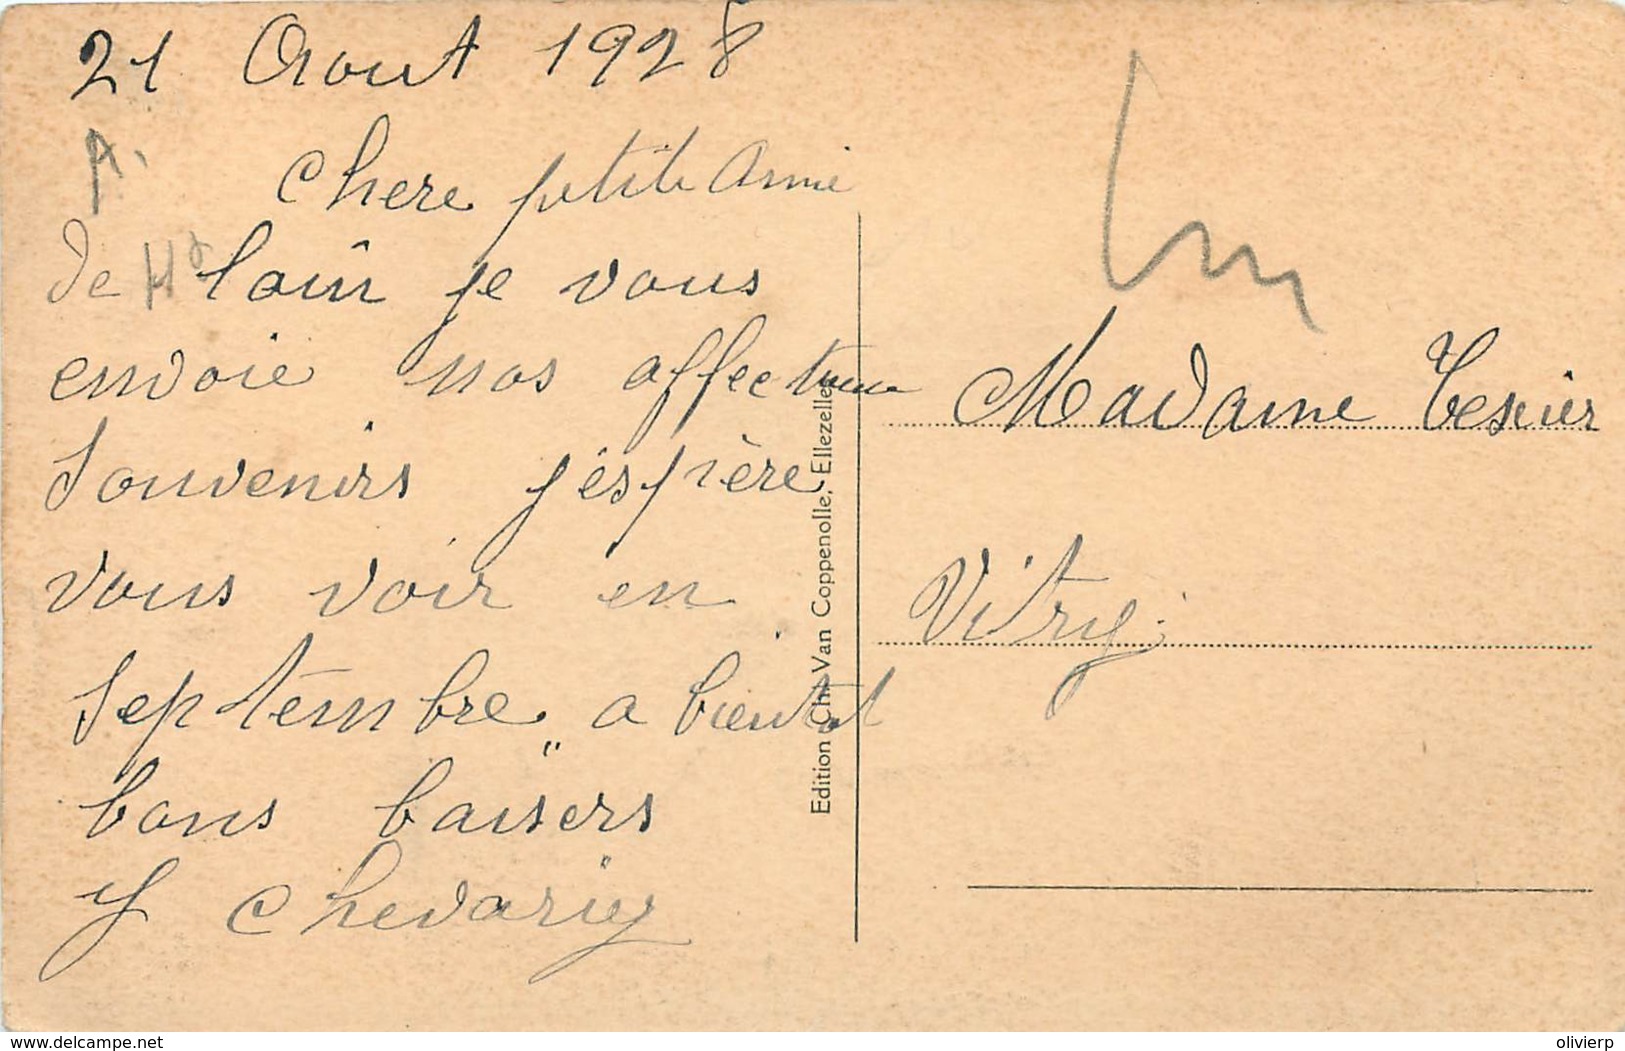 21 Aout 1928
A.
Chere ptite Amie
de loin je vous
Ht
envoie nos affectueux
Souvenirs j'espière
vous voir en
Septembre a bientot
bons baisers
Y Chevarier
Edition Ch. Van Coppenolle, Ellezelles
Madame Texier
Vitry
www.delcampe.net
olivierp